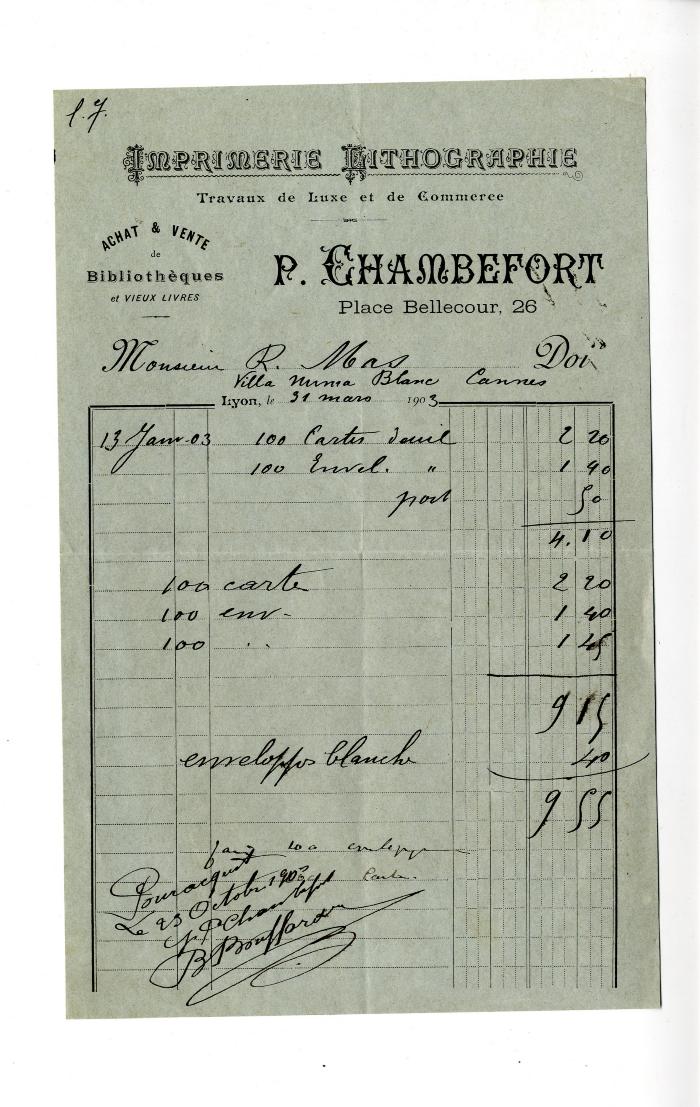 IMPRIMERIE LITHOGRAPHIE
Travaux de Luxe et de Commerce
ACHAT & VENTE
de
Bibliothèques
et VIEUX LIVRES
P. CHAMBEFORT
Place Bellecour, 26
Monsieur R. Mas Doit
Villa Numa Blanc Cannes
Lyon, le 31 mars 1903
13 Janv. 03 100 Cartes deuil 2 20
100 Envel. " 1 40
port 50
4.10
100 carte 2 20
100 env. 1 40
100 " 1 45
9 15
enveloppes blanche 40
9 55
100
Pour acquit
Le 23 Octobre 1903
P. Chambefort
B Bouffaron